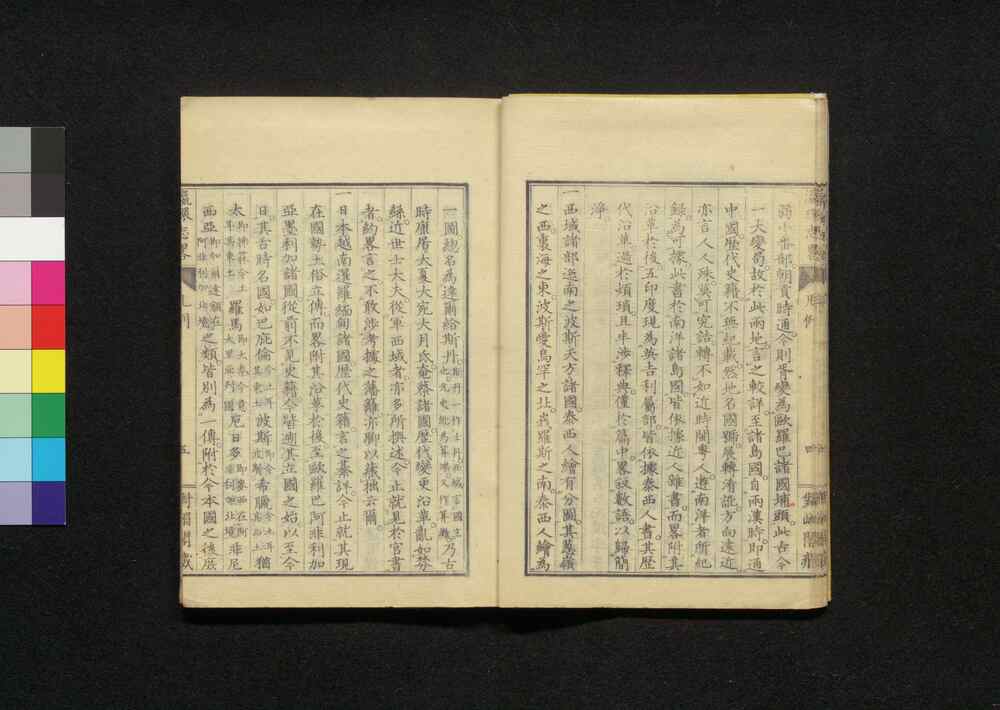 弱小番部朝貢時通今則胥變為歐羅巴諸國埔頭此古今
一大變局故於此兩地言之較詳至諸島國自兩漢時即通
中國歷代史籍不無記載然地名國號展轉淆訛方向遠近
亦言人人殊莫可究詰轉不如近時閩粵人遊南洋者所紀
錄為可據此書於南洋諸島國皆依據近人雜書而畧附其
沿革於後五印度現為英吉利屬部皆依據泰西人書其歷
代沿革過於煩瑣且半涉釋典僅於篇中畧敘數語以歸簡
淨
一西域諸部迤南之波斯天方諸國泰西人繪有分圖其葱嶺
之西裏海之東波斯愛烏罕之北峩羅斯之南泰西人繪為
一圖總名為達爾給斯丹斯丹一作士丹西域言國主也元史地為算端又作算灘乃古
時康居大夏大宛大月氏奄蔡諸國歷代變更沿革亂如棼
絲近世士大夫從軍西域者亦多所撰述今止就見於官書
者約畧言之不敢涉考據之藩籬亦聊以藏拙云爾
一日本越南暹羅緬甸諸國歷代史籍言之綦詳今止就其現
在國勢土俗立傳而畧附其沿革於後至歐羅巴阿非利加
亞墨利加諸國從前不見史籍今皆遡其立國之始以至今
日其古時名國如巴庇倫波斯希臘猶
太羅馬厄日多非尼
西亞之類皆別為一傳附於今本國之後庶
瀛環志畧
凡例
四
五